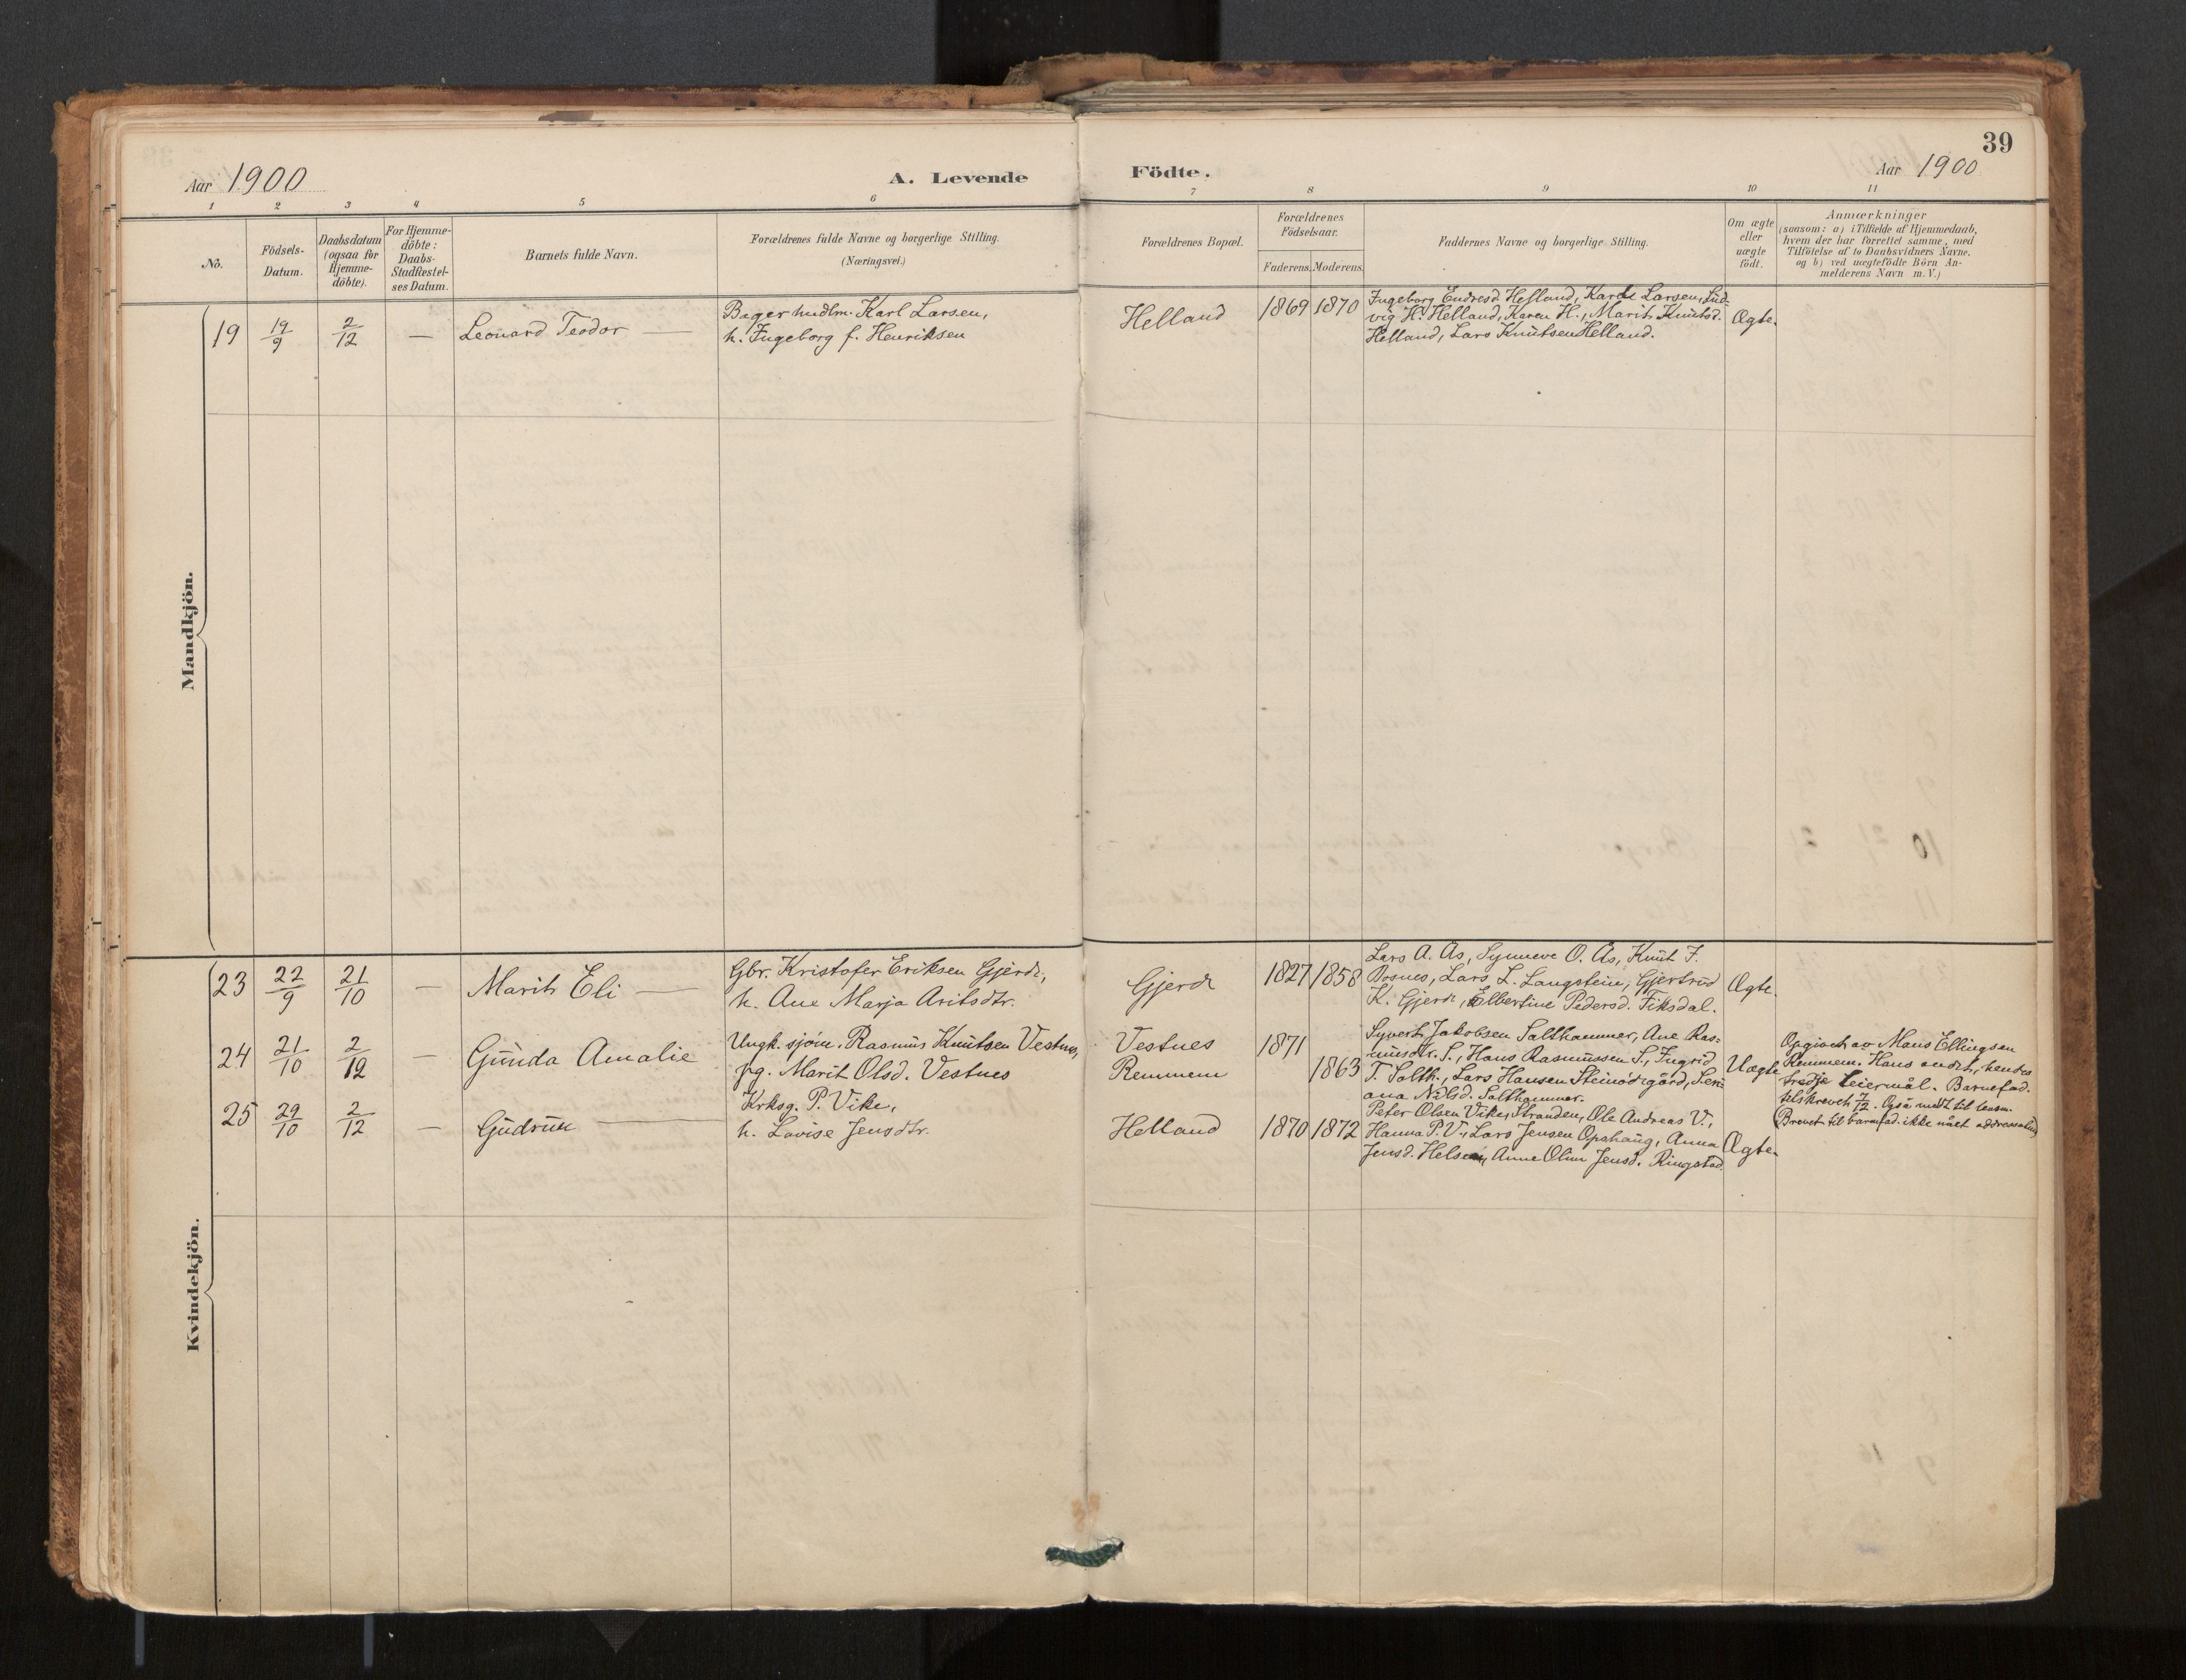 39
Aar 1900
A. Levende Födte.
Aar 1900
1 2 3 4 5 6 7 8 9 10 11
No.
Födsels-
Datum.
Daabsdatum
(ogsaa for
Hjemme-
döbte).
For Hjemme-
döbte:
Daabs-
Stadfestel-
ses Datum.
Barnets fulde Navn.
Forældrenes fulde Navne og borgerlige Stilling.
(Næringsvei.)
Forældrenes Bopæl.
Forældrenes
Födselsaar.
Faderens. Moderens.
Faddernes Navne og borgerlige Stilling.
Om ægte
eller
uægte
födt.
Anmærkninger
(saasom: a) i Tilfælde af Hjemmedaab,
hvem der har forrettet samme, med
Tilföielse af to Daabsvidners Navne.
og b) ved uægtefödte Börn An-
melderens Navn m. V.)
Mandkjön.
19 19/9 2/12 — Leonard Teodor —
Bager hudlm. Karl Larsen,
h. Ingeborg f. Henriksen
Helland 1869 1870
Ingeborg Endresd. Helland, Karl Larsen, Lud-
vig H. Helland, Karen H., Marit Knutsd.
Helland, Lars Knutsen Helland.
Ægte.
Kvindekjön.
23 22/9 21/10 — Marit Eli —
Gbr. Kristofer Eriksen Gjerde,
h. Ane Marja Aritsdtr.
Gjerde 1827 1858
Lars A. Ås, Synneve O. Ås, Knut F.
Bosnes, Lars L. Langstein, Gjertrud
K. Gjerde, Elbertine Pedersd. Fiksdal.
Ægte.
24 21/10 2/12 — Gunda Amalie
Ungk. sjøm. Rasmus Knutsen Vestnes,
pg. Marit Olsd. Vestnes
Vestnes 1871
Remmem 1863
Syvert Jakobsen Salthammer, Ane Ras-
musdtr. S., Hans Rasmussen S., Ingrid
T. Salth., Lars Hansen Steinødegård, Seri-
ana Nilsd. Salthammer.
Uægte
Opgivet av Mons Ellingsen
Remmem. Hans andet, hendes
tredje leiermål. Barnefad.
tilskrevet 7/12. Også medt til lensm.
(Brevet til barnefad. ikke nået addressaten)
25 29/10 2/12 — Gudrun —
Krksg. P. Vike,
h. Lovise Jensdtr.
Helland 1870 1872
Peter Olsen Vike, Stranden, Ole Andreas V.,
Hanna P. V., Lars Jensen Opshaug, Anna
Jensd. Helsem, Anne Oline Jensd. Ringstad
Ægte.